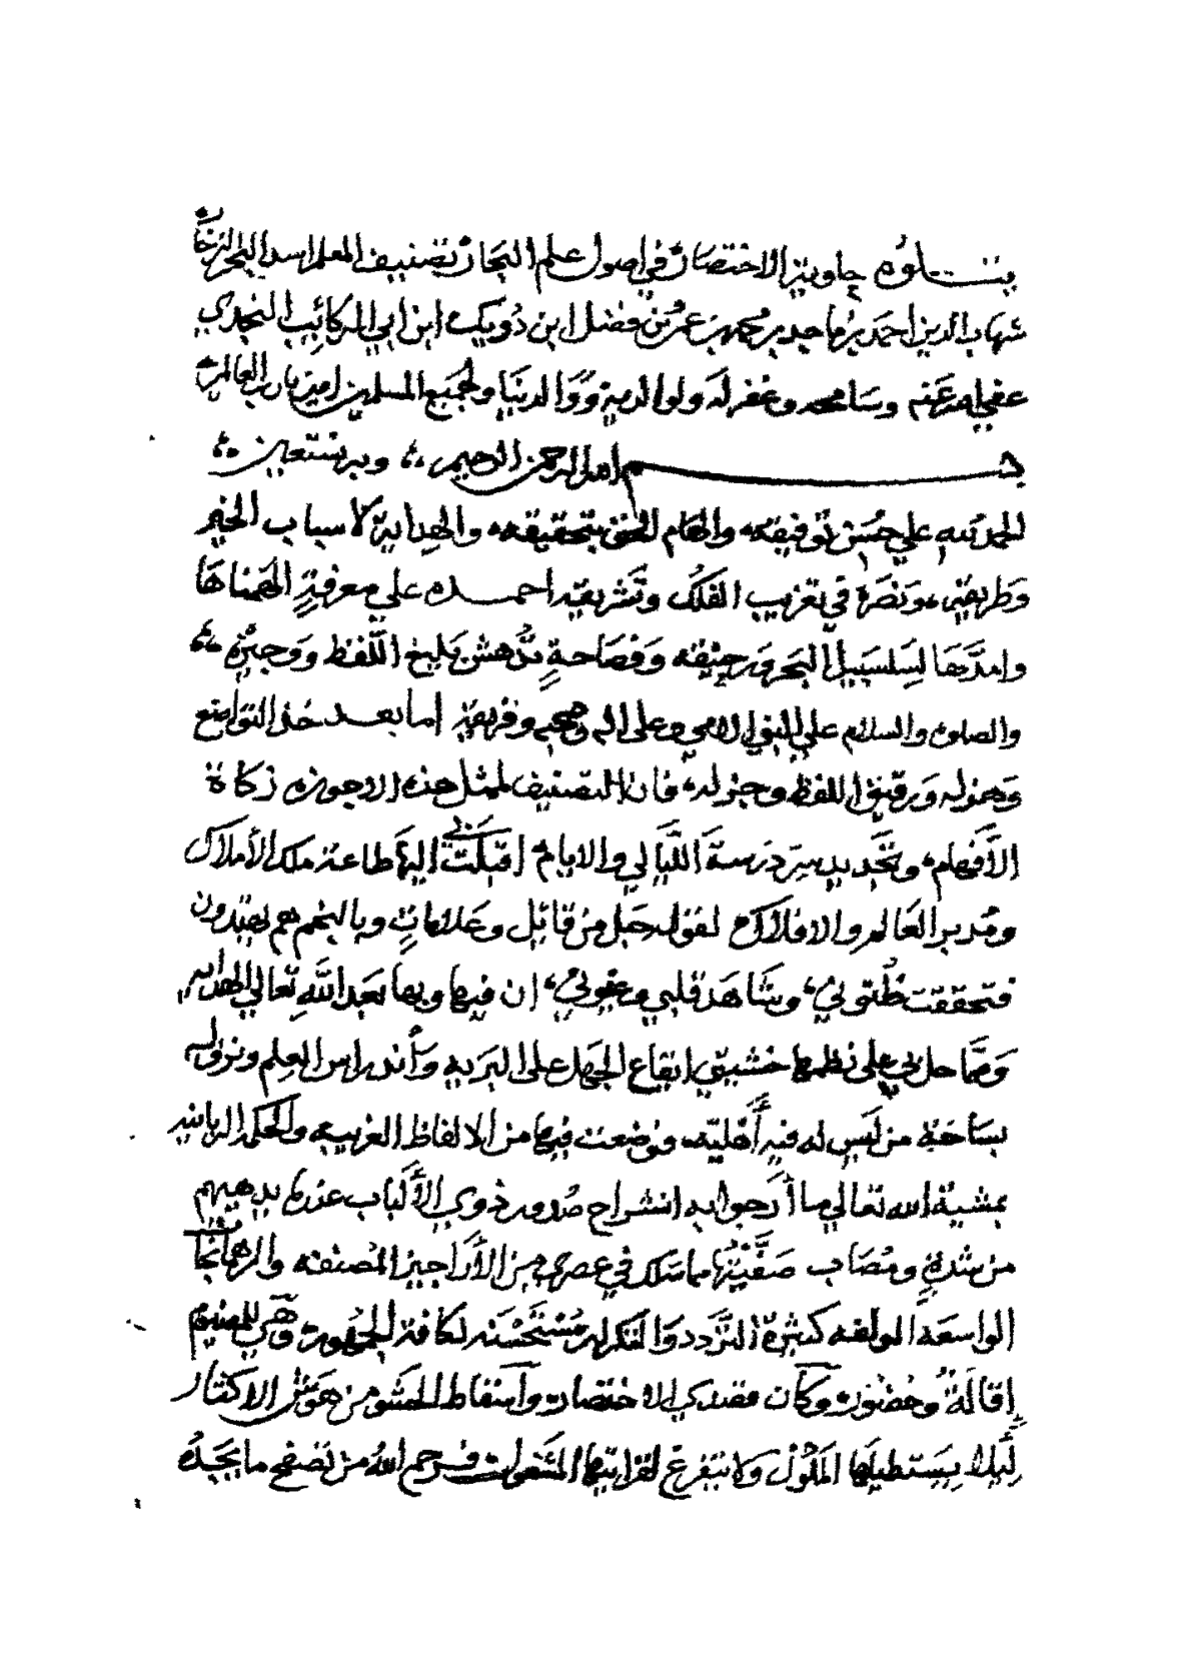 يتـــلوه حاوية الاختصار في اصول علم البحار تصنيف المعلم اسد البحر الزخار
شهاب الدين احمد بن ماجد بن محمد بن عمر بن فضل ابن دويك ابن ابي الركائب النجدي
عفي الله عنه وسامحه وغفر له ولوالديه ووالدينا ولجميع المسلمين امين يا رب العالمين
بـــسم الله الرحمن الرحيم وبه نستعين
الحمد لله علي حسن توفيقه والهام الحق بتحقيقه والهداية لاسباب الخير
وطريقه ونضرة في تغريب الفلك وتشريقه احمـــده علي معرفةٍ الهمناها
وامدَّها لسلسبيل البحر ورحيقه وفصاحةٍ تُدهش بليغ اللَّفظ ووجيزه
والصلوة والسلام علي النبي الامي وعلى اله وصحبه وفريقه اما بعـــد خذ التواضع
وهزوله ورقيق اللفظ وجزوله فان التصنيف لمثل هذه الارجوزه زكاة
الأَفهام وتجديد دَرسة اللَّيالي والايام اقبَلَت بي اليها طاعة ملك الأملاك
ومُدبر العَالم والافلاك لقوله جل من قائل وعلاماتٍ وبالنجم هم يهتدون
فتحققت ظنوني وشاهد قلبي وعيوني ان فيها وبها بعد اللَّهِ تعالي الهدايه
وممَّا حل بي على نظمها خشيتي ايقاع الجهل على البريه وأندراس العلم ونزوله
بساحة من ليس له فيه أَهليّه فوضعت فيها من الالفاظ الغريبه والحكم الربانيه
بمشيَّة الله تعالي ما أَرجوا به انشراح صُدور ذوي الأَلباب عند بديههم
من شدةٍ ومُصاب صَفَّيتُها مما سلك في عصرهم من الأَراجيز المُصنفه والرهمانجات
الواسعَة المولفه كثيرة التَّردد والتكرار مُستَحسَنه لكافة الجمهور وهي للمقيم
إقالةٌ وحُضور وكان مقصدي الاختصار وآسقاط الحشو من هَوَش الاكثار
لئِلا يستطيلَها المَلول ولا يتفرغ لقرائتها المَشغول فـرحم اللهُ من تصفح ما يَجدُه